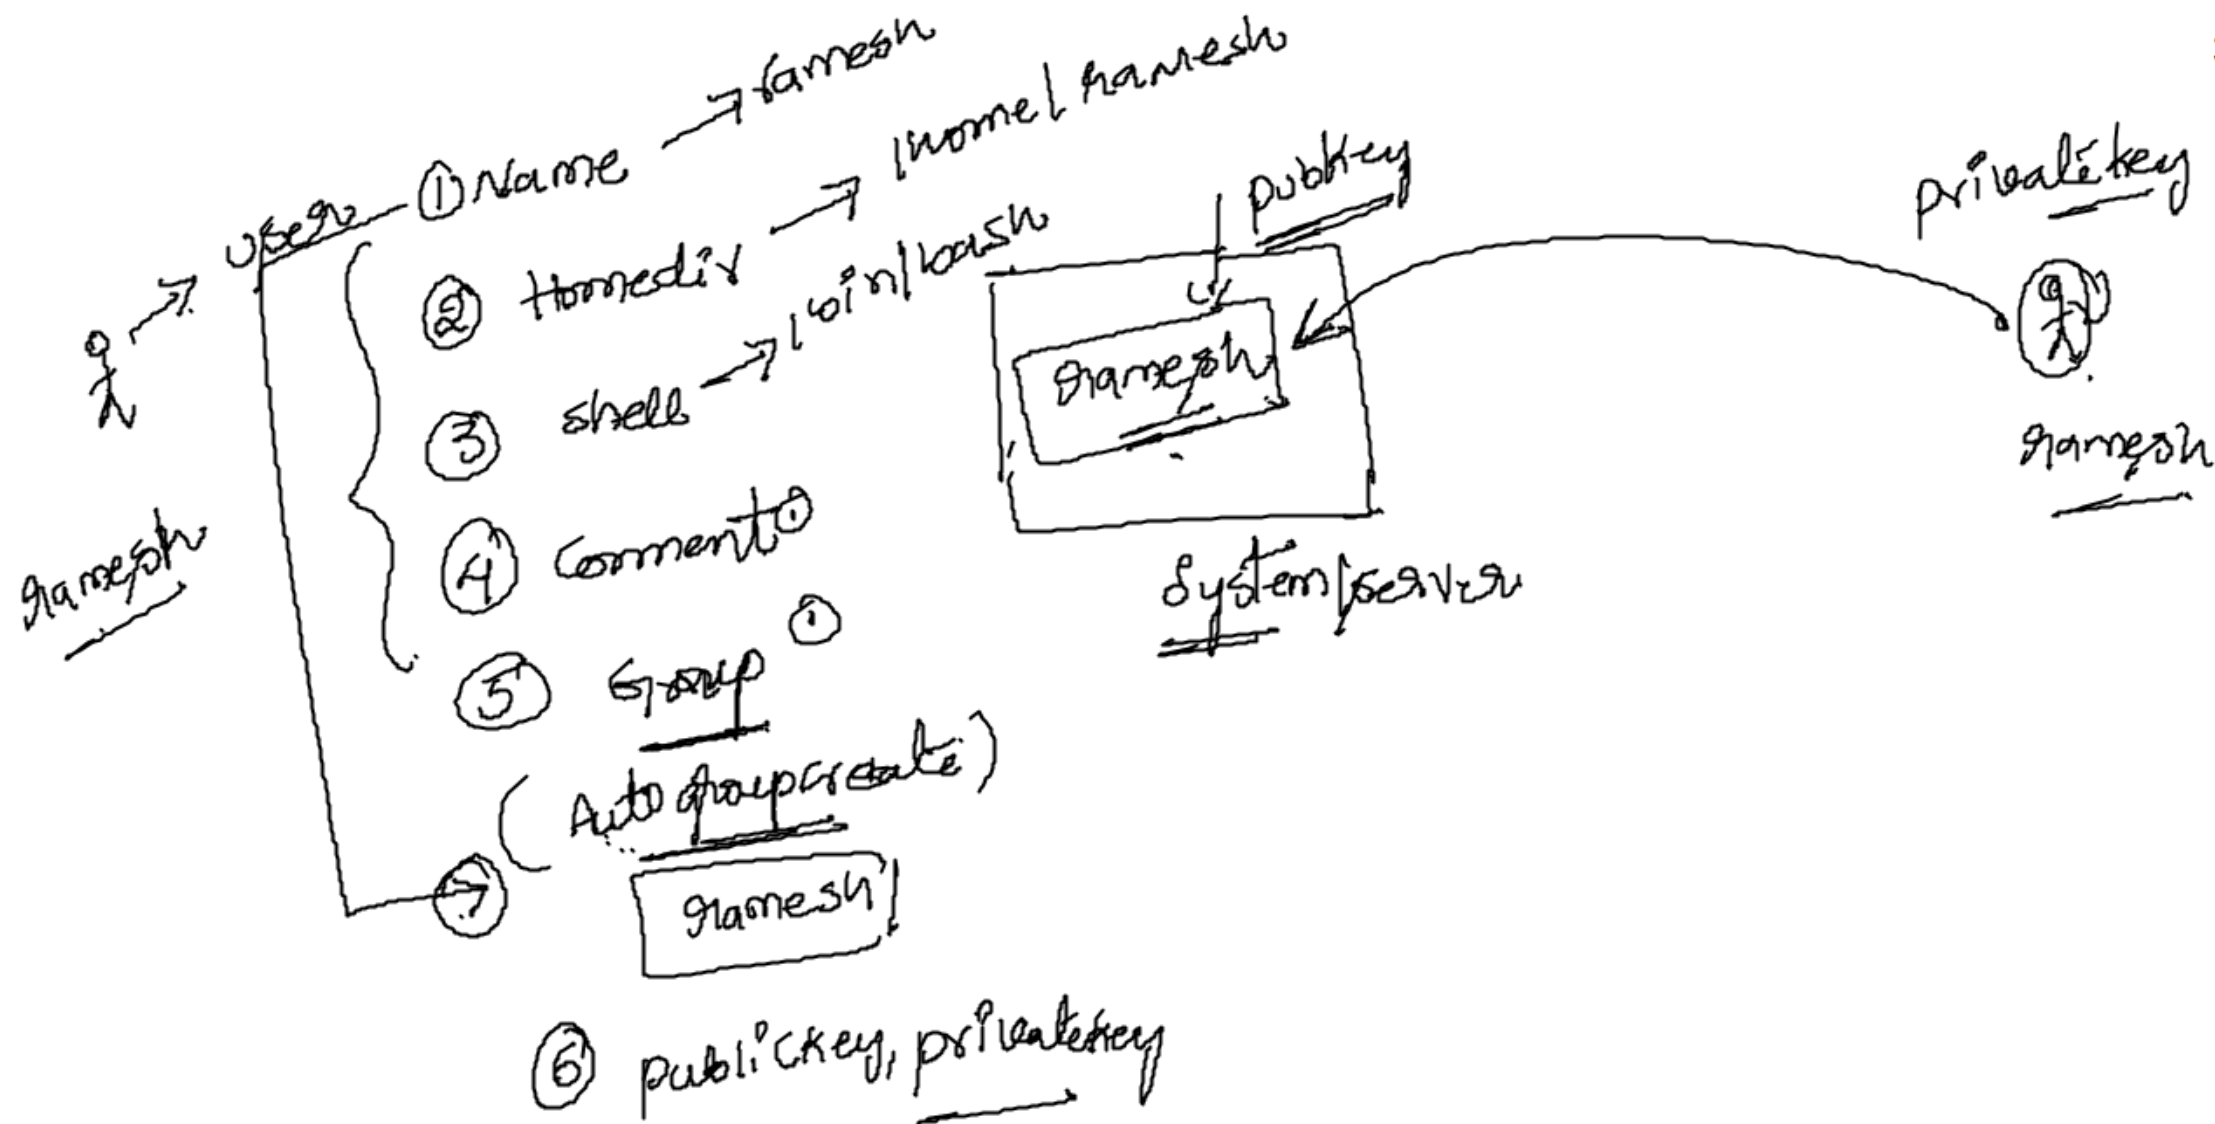 user
① Name → ramesh
② Homedir → /home/ramesh
③ shell → /bin/bash
④ Comment ①
⑤ Group ①
(Auto group create)
ramesh
⑥ publickey, privatekey
ramesh
pubkey
ramesh
System/server
privatekey
ramesh